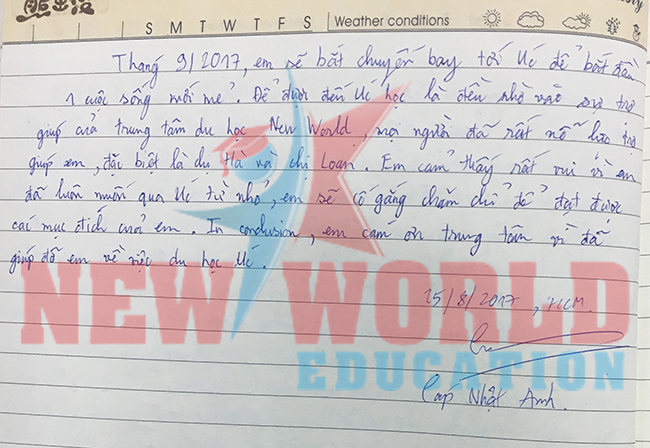 S M T W T F S Weather conditions
Tháng 9/2017, em sẽ bắt chuyến bay tới Úc để bắt đầu
1 cuộc sống mới mẻ. Để được đến Úc học là đều nhờ vào sự trợ
giúp của trung tâm du học New World, mọi người đã rất nỗ lực trợ
giúp em, đặc biệt là chị Hà và chị Loan. Em cảm thấy rất vui vì em
đã luôn muốn qua Úc từ nhỏ, em sẽ cố gắng chăm chỉ để đạt được
các mục đích của em. In conclusion, em cám ơn trung tâm vì đã
giúp đỡ em về việc du học Úc.
25/8/2017, HCM.
Cao Nhật Anh.
NEW WORLD
EDUCATION